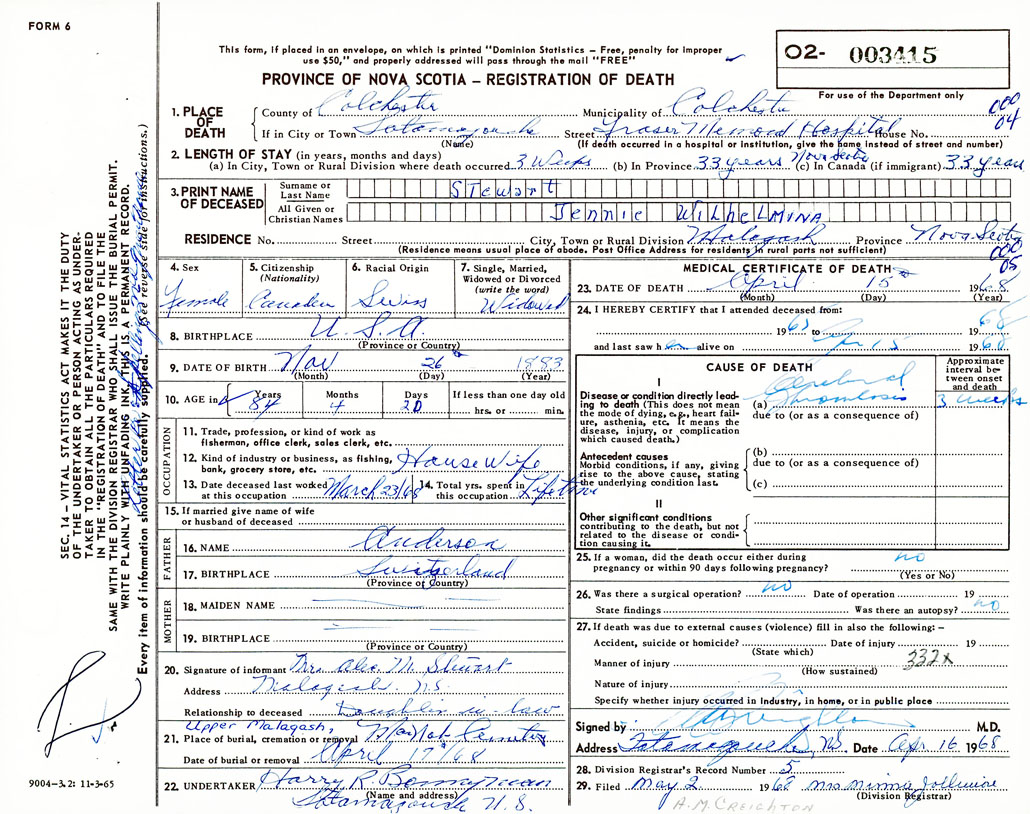 FORM 6
This form, if placed in an envelope, on which is printed "Dominion Statistics – Free, penalty for improper
use $50," and properly addressed will pass through the mail "FREE"
O2- 003415
PROVINCE OF NOVA SCOTIA – REGISTRATION OF DEATH
For use of the Department only
1. PLACE OF DEATH County of Colchester Municipality of Colchester 000 04
If in City or Town Tatamagouche Street Fraser Memorial Hospital House No.
(Name) (If death occurred in a hospital or institution, give the name instead of street and number)
2. LENGTH OF STAY (in years, months and days) Nova Scotia
(a) In City, Town or Rural Division where death occurred 3 Weeks (b) In Province 33 years (c) In Canada (if immigrant) 33 years
3. PRINT NAME OF DECEASED Surname or Last Name Stewart
All Given or Christian Names Jennie Wilhelmina
RESIDENCE No. Street City, Town or Rural Division Malagash Province Nova Scotia
(Residence means usual place of abode. Post Office Address for residents in rural parts not sufficient)
000 05
4. Sex Female
5. Citizenship (Nationality) Canadian
6. Racial Origin Swiss
7. Single, Married, Widowed or Divorced (write the word) Widowed
8. BIRTHPLACE U.S.A.
(Province or Country)
9. DATE OF BIRTH Nov 26 1883
(Month) (Day) (Year)
10. AGE in Years 84 Months 4 Days 20 If less than one day old
hrs. or min.
OCCUPATION
11. Trade, profession, or kind of work as
fisherman, office clerk, sales clerk, etc.
12. Kind of industry or business, as fishing,
bank, grocery store, etc. House Wife
13. Date deceased last worked at this occupation March 23/68 14. Total yrs. spent in this occupation Lifetime
15. If married give name of wife
or husband of deceased
FATHER
16. NAME Anderson
17. BIRTHPLACE Switzerland
(Province or Country)
MOTHER
18. MAIDEN NAME
19. BIRTHPLACE
(Province or Country)
20. Signature of informant Mrs. Alex. M. Stewart
Address Malagash N.S.
Relationship to deceased Daughter in-law
Upper Malagash,
21. Place of burial, cremation or removal Cemetery
Date of burial or removal April 17/68
22. UNDERTAKER Harry R. Bonnyman
(Name and address)
Tatamagouche N.S.
MEDICAL CERTIFICATE OF DEATH
23. DATE OF DEATH April 15 1968
(Month) (Day) (Year)
24. I HEREBY CERTIFY that I attended deceased from:
19 to 1968
and last saw h alive on Apr 15 1968
CAUSE OF DEATH
Approximate interval between onset and death
I
Disease or condition directly lead-
ing to death (This does not mean
the mode of dying, e.g., heart fail-
ure, asthenia, etc. It means the
disease, injury, or complication
which caused death.)
(a) Cerebral Thrombosis 3 weeks
due to (or as a consequence of)
Antecedent causes
Morbid conditions, if any, giving
rise to the above cause, stating
the underlying condition last.
(b)
due to (or as a consequence of)
(c)
II
Other significant conditions
contributing to the death, but not
related to the disease or condi-
tion causing it.
25. If a woman, did the death occur either during
pregnancy or within 90 days following pregnancy? no
(Yes or No)
26. Was there a surgical operation? no Date of operation 19
State findings Was there an autopsy? no
27. If death was due to external causes (violence) fill in also the following: –
Accident, suicide or homicide? Date of injury 19
(State which)
Manner of injury 332x
(How sustained)
Nature of injury
Specify whether injury occurred in Industry, in home, or in public place
Signed by M.D.
Address Tatamagouche, N.S. Date Apr 16 1968
28. Division Registrar's Record Number 5
29. Filed May 2 1968 Mrs Minna Jollimore
(Division Registrar)
A.M. CREIGHTON
SEC. 14 – VITAL STATISTICS ACT MAKES IT THE DUTY
OF THE UNDERTAKER OR PERSON ACTING AS UNDER-
TAKER TO OBTAIN ALL THE PARTICULARS REQUIRED
IN THE "REGISTRATION OF DEATH" AND TO FILE THE
SAME WITH THE DIVISION REGISTRAR WHO SHALL ISSUE THE BURIAL PERMIT.
WRITE PLAINLY WITH UNFADING INK, THIS IS A PERMANENT RECORD.
Every item of information should be carefully supplied. (See reverse side for instructions.)
9004-3.2: 11-3-65